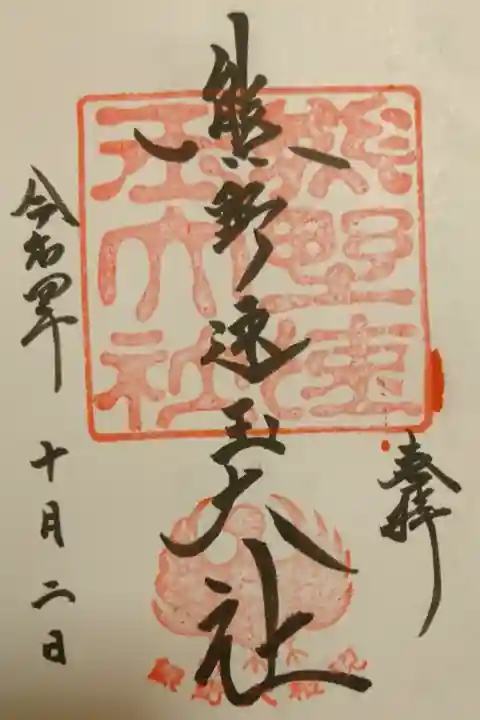 奉拝
熊野速玉大社
熊野速
玉大社
令和四年
十月二日